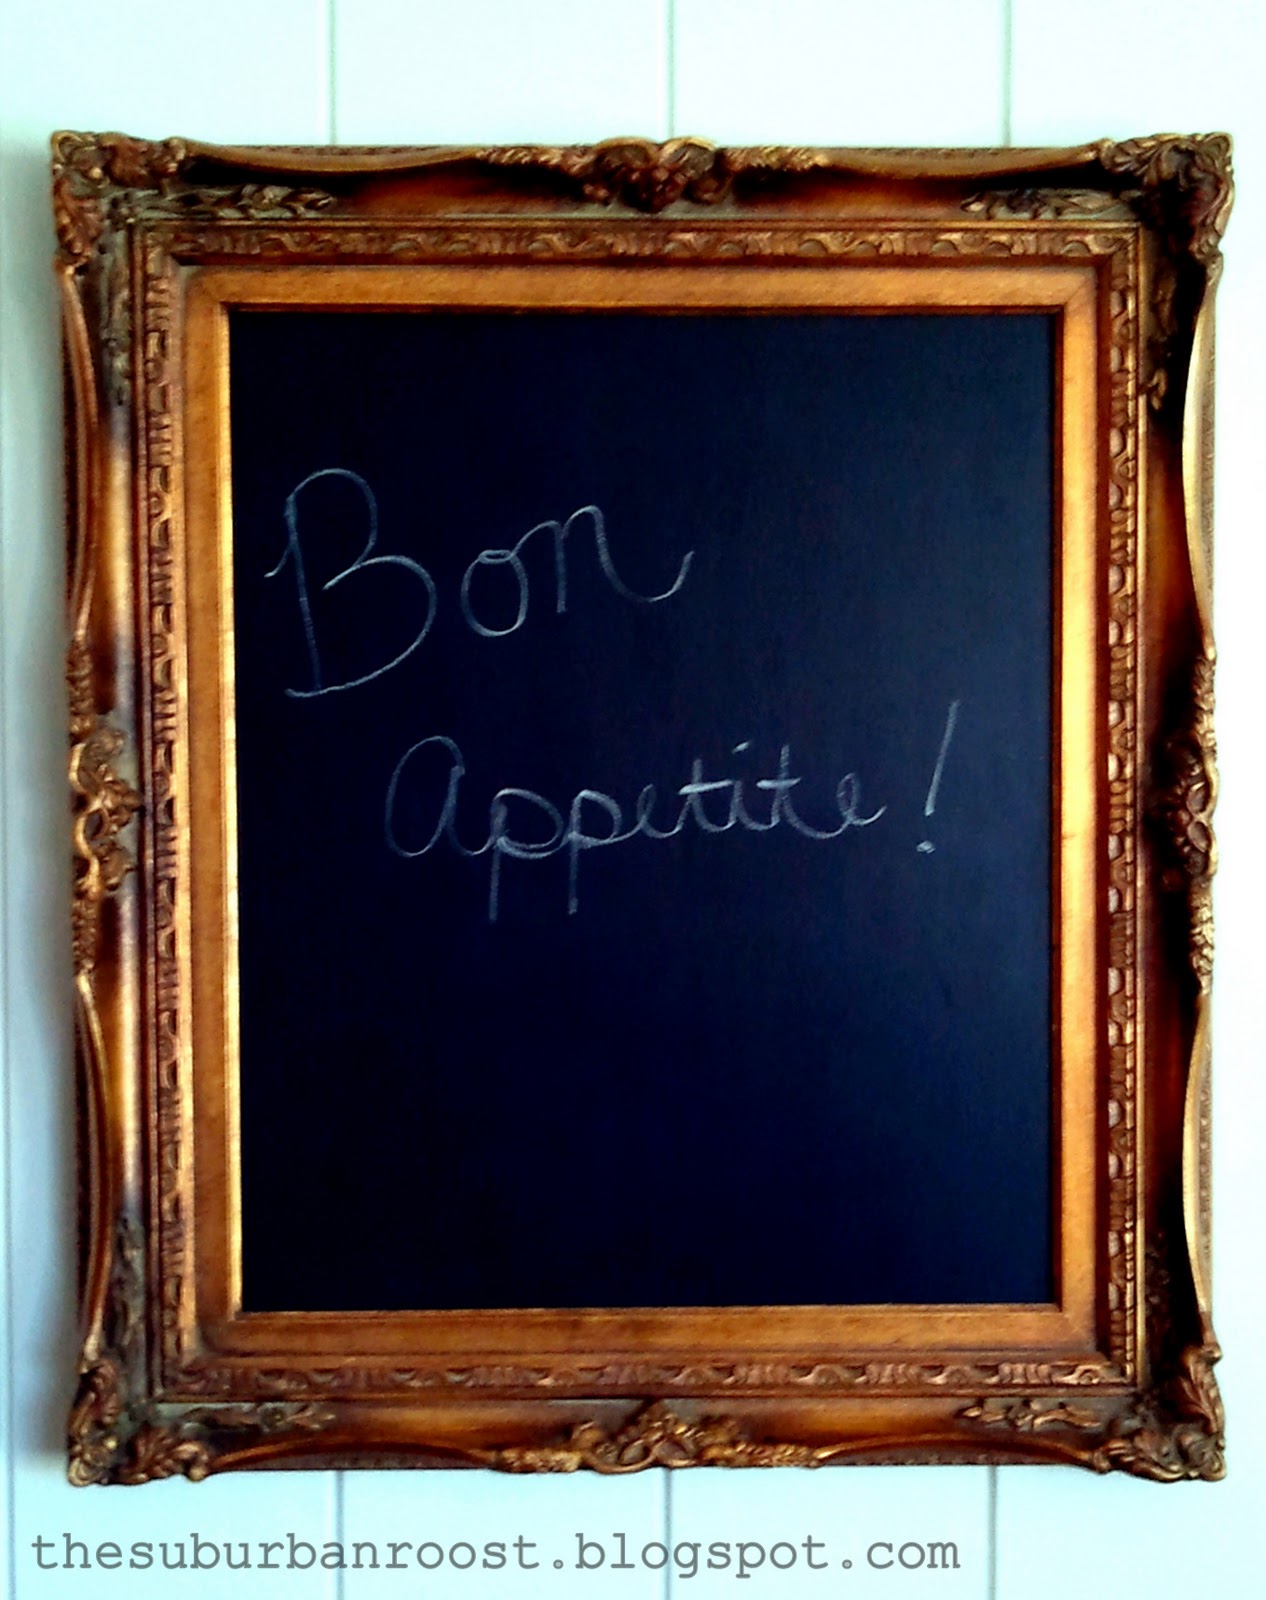 Bon
Appetite!
thesuburbanroost.blogspot.com